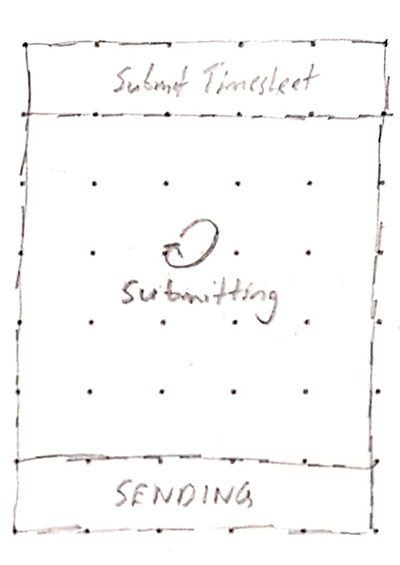 Submit Timesheet
Submitting
SENDING